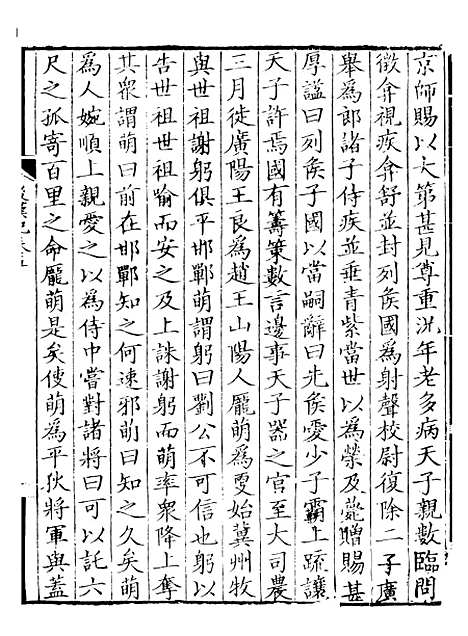 京師賜以大第甚見尊重況年老多病天子親數臨問
徵弇視疾弇舒並封列侯國為射聲校尉復除二子廣
舉為郎諸子侍疾並垂青紫當世以為榮及薨贈賜甚
厚諡曰列侯子國以當嗣辭曰先侯愛少子霸上疏讓
天子許焉國有籌策數言邊事天子器之官至大司農
三月徙廣陽王良為趙王山陽人龐萌為更始冀州牧
與世祖謝躬俱平邯鄲萌謂躬曰劉公不可信也躬以
告世祖世祖喻而安之及上誅謝躬而萌率衆降上奪
其衆謂萌曰前在邯鄲知之何速邪萌曰知之久矣萌
為人婉順上親愛之以為侍中嘗對諸將曰可以託六
尺之孤寄百里之命龐萌是矣使萌為平狄將軍與蓋